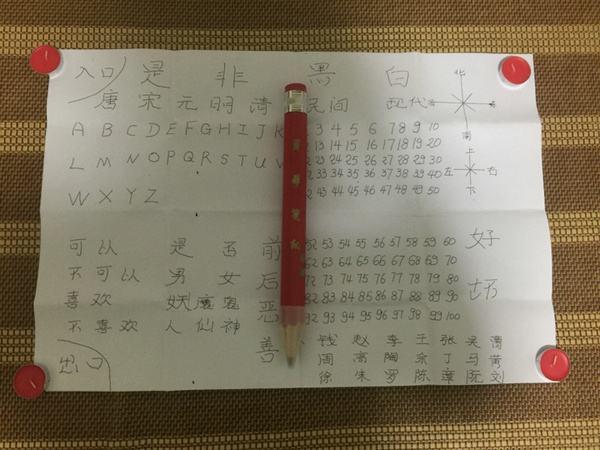 入口 是 非 黑 白
唐 宋 元 明 清 民间 现代
北
南
A B C D E F G H I J K
L M N O P Q R S T U V
W X Y Z
3 4 5 6 7 8 9 10
13 14 15 16 17 18 19 20
23 24 25 26 27 28 29 30
33 34 35 36 37 38 39 40
43 44 45 46 47 48 49 50
上
左 右
下
可以 是 否 前
不可以 男 女 后
喜欢 妖 魔 鬼 恶
不喜欢 人 仙 神 善
出口
52 53 54 55 56 57 58 59 60
62 63 64 65 66 67 68 69 70
72 73 74 75 76 77 78 79 80
82 83 84 85 86 87 88 89 90
92 93 94 95 96 97 98 99 100
好
坏
钱 赵 李 王 张 吴
周 高 陶 余 丁 马 黄
徐 朱 罗 陈 章 阮 刘